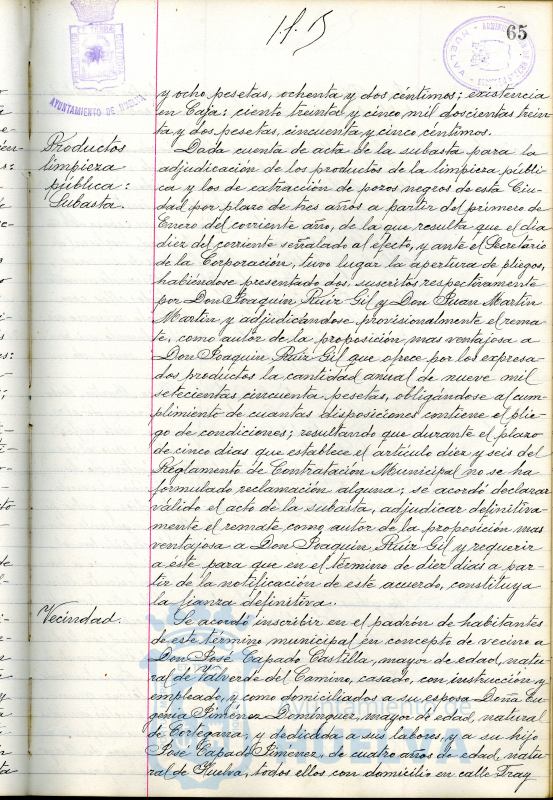 65
AYUNTAMIENTO DE HUELVA
y ocho pesetas, ochenta y dos céntimos; existencia
en Caja: ciento treinta y cinco mil doscientas trein
ta y dos pesetas, cincuenta y cinco céntimos.
Productos
limpieza
pública:
Subasta.
Dada cuenta de acta de la subasta para la
adjudicación de los productos de la limpieza públi-
ca y los de extracción de pozos negros de esta Ciu-
dad por plazo de tres años a partir del primero de
Enero del corriente año, de la que resulta que el día
diez del corriente señalado al efecto, y ante el Secretario
de la Corporación, tuvo lugar la apertura de pliegos,
habiéndose presentado dos, suscritos respectivamente
por Don Joaquin Ruiz Gil y Don Juan Martin
Martin y adjudicándose provisionalmente el rema-
te, como autor de la proposición mas ventajosa a
Don Joaquin Ruiz Gil que ofrece por los expresa
dos productos la cantidad anual de nueve mil
setecientas cincuenta pesetas, obligándose al cum-
plimiento de cuantas disposiciones contiene el plie-
go de condiciones; resultando que durante el plazo
de cinco dias que establece el artículo diez y seis del
Reglamento de Contratación Municipal no se ha
formulado reclamación alguna; se acordó declarar
válido el acto de la subasta, adjudicar definitiva-
mente el remate como autor de la proposición mas
ventajosa a Don Joaquin Ruiz Gil y requerir
a éste para que en el término de diez dias a par-
tir de la notificación de este acuerdo, constituya
la fianza definitiva.
Vecindad.
Se acordó inscribir en el padrón de habitantes
de este término municipal en concepto de vecino a
Don José Capado Castilla, mayor de edad, natu-
ral de Valverde del Camino, casado, con instrucción y
empleado, y como domiciliados a su esposa Doña Eu-
genia Jiménez Dominguez, mayor de edad, natural
de Cortegana, y dedicada a sus labores, y a su hijo
José Capado Jiménez, de cuatro años de edad, natu-
ral de Huelva, todos ellos con domicilio en calle Fray
Ayuntamiento de
HUELVA